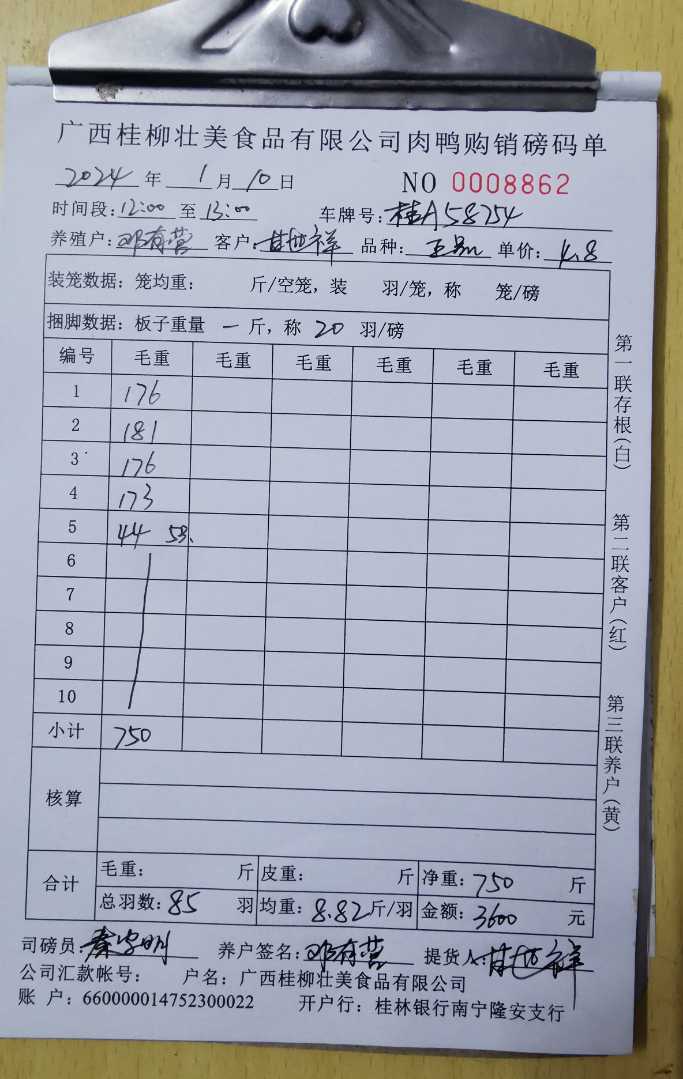 广西桂柳壮美食品有限公司肉鸭购销磅码单
2024 年 1 月 10 日 NO 0008862
时间段: 12:00 至 13:00 车牌号: 桂A58254
养殖户: 邓有营 客户: 甘地祥 品种: 单价: 4.8
装笼数据: 笼均重: 斤/空笼, 装 羽/笼, 称 笼/磅
捆脚数据: 板子重量 一 斤, 称 20 羽/磅
编号 毛重 毛重 毛重 毛重 毛重 毛重
1 176
2 181
3 176
4 173
5 44 5只.
6
7
8
9
10
小计 750
核算
合计 毛重: 斤 皮重: 斤 净重: 750 斤
总羽数: 85 羽 均重: 8.82 斤/羽 金额: 3600 元
司磅员: 养户签名: 邓有营 提货人 甘地祥
公司汇款帐号: 户名: 广西桂柳壮美食品有限公司
账 户: 660000014752300022 开户行: 桂林银行南宁隆安支行
第一联存根(白)
第二联客户(红)
第三联养户(黄)